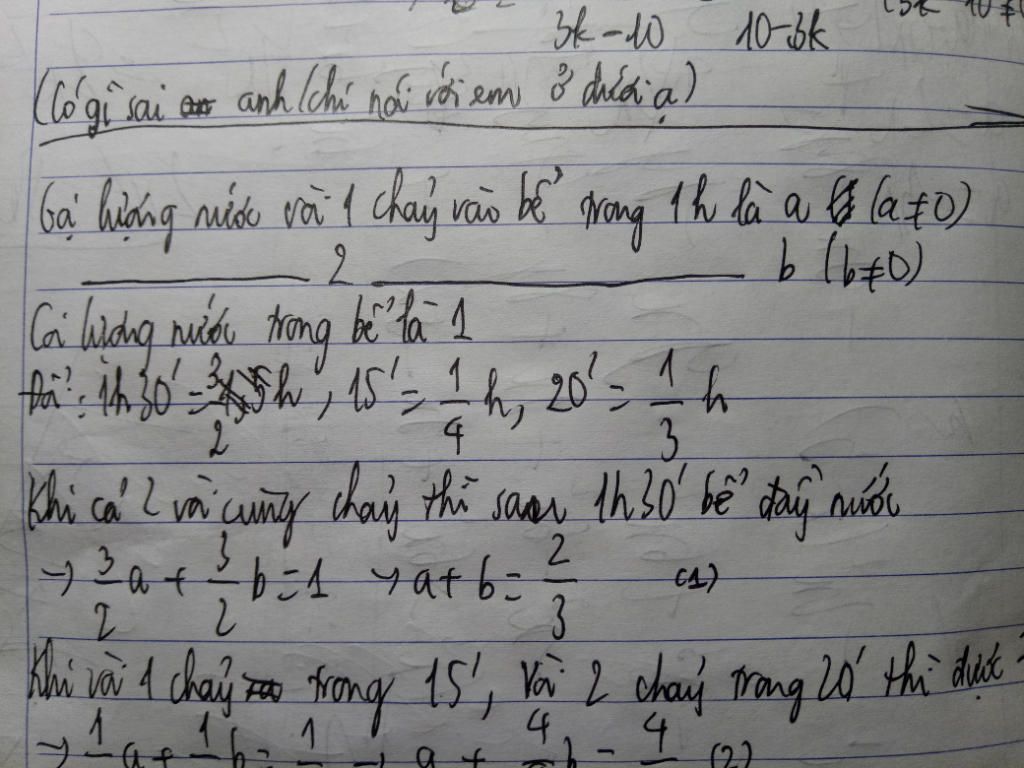 3k-10 10-3k
(Có gì sai anh/chị nói với em ở dưới ạ)
Gọi lượng nước vòi 1 chảy vào bể trong 1h là a (a≠0)
2 b (b≠0)
Cả lượng nước trong bể là 1
Đổi: 1h30' = 3/2 h, 15' = 1/4 h, 20' = 1/3 h
Khi cả 2 vòi cùng chảy thì sau 1h30' bể đầy nước
→ 3/2 a + 3/2 b = 1 → a + b = 2/3 (1)
Khi vòi 1 chảy trong 15', vòi 2 chảy trong 20' thì được
→ 1 a + 1 b = 1 → a + 4 b = 4 (2)